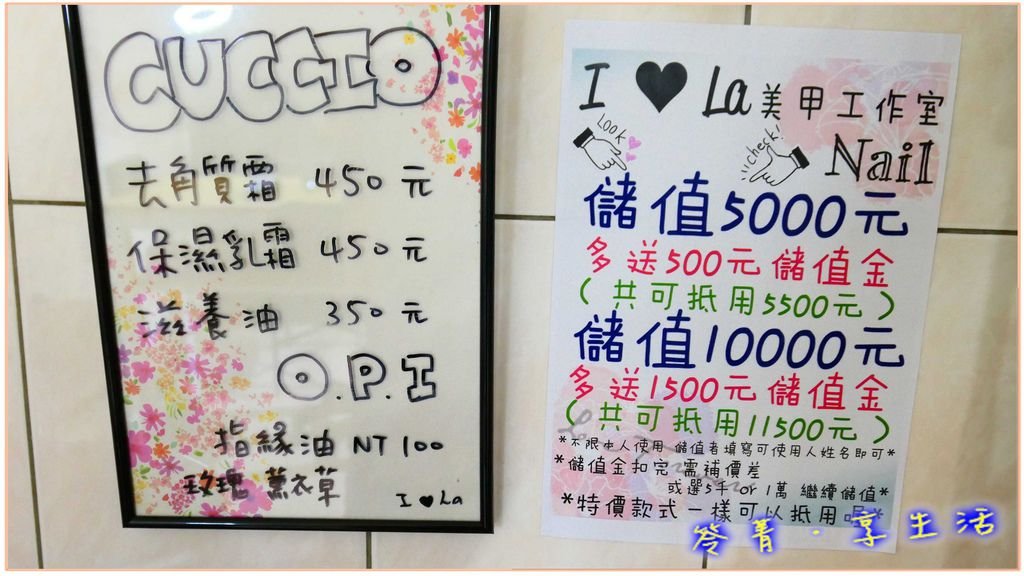 CUCCIO
去角質霜 450元
保濕乳霜 450元
滋養油 350元
O.P.I
指緣油 NT 100
玫瑰 薰衣草
I ♥ La
I ♥ La 美甲工作室
LOOK
check!
Nail
儲值5000元
多送500元儲值金
(共可抵用5500元)
儲值10000元
多送1500元儲值金
(共可抵用11500元)
*不限本人使用 儲值者填寫可使用人姓名即可*
*儲值金扣完 需補價差
或選5千or1萬 繼續儲值*
*特價款式一樣可以抵用喔*
答菁·享生活